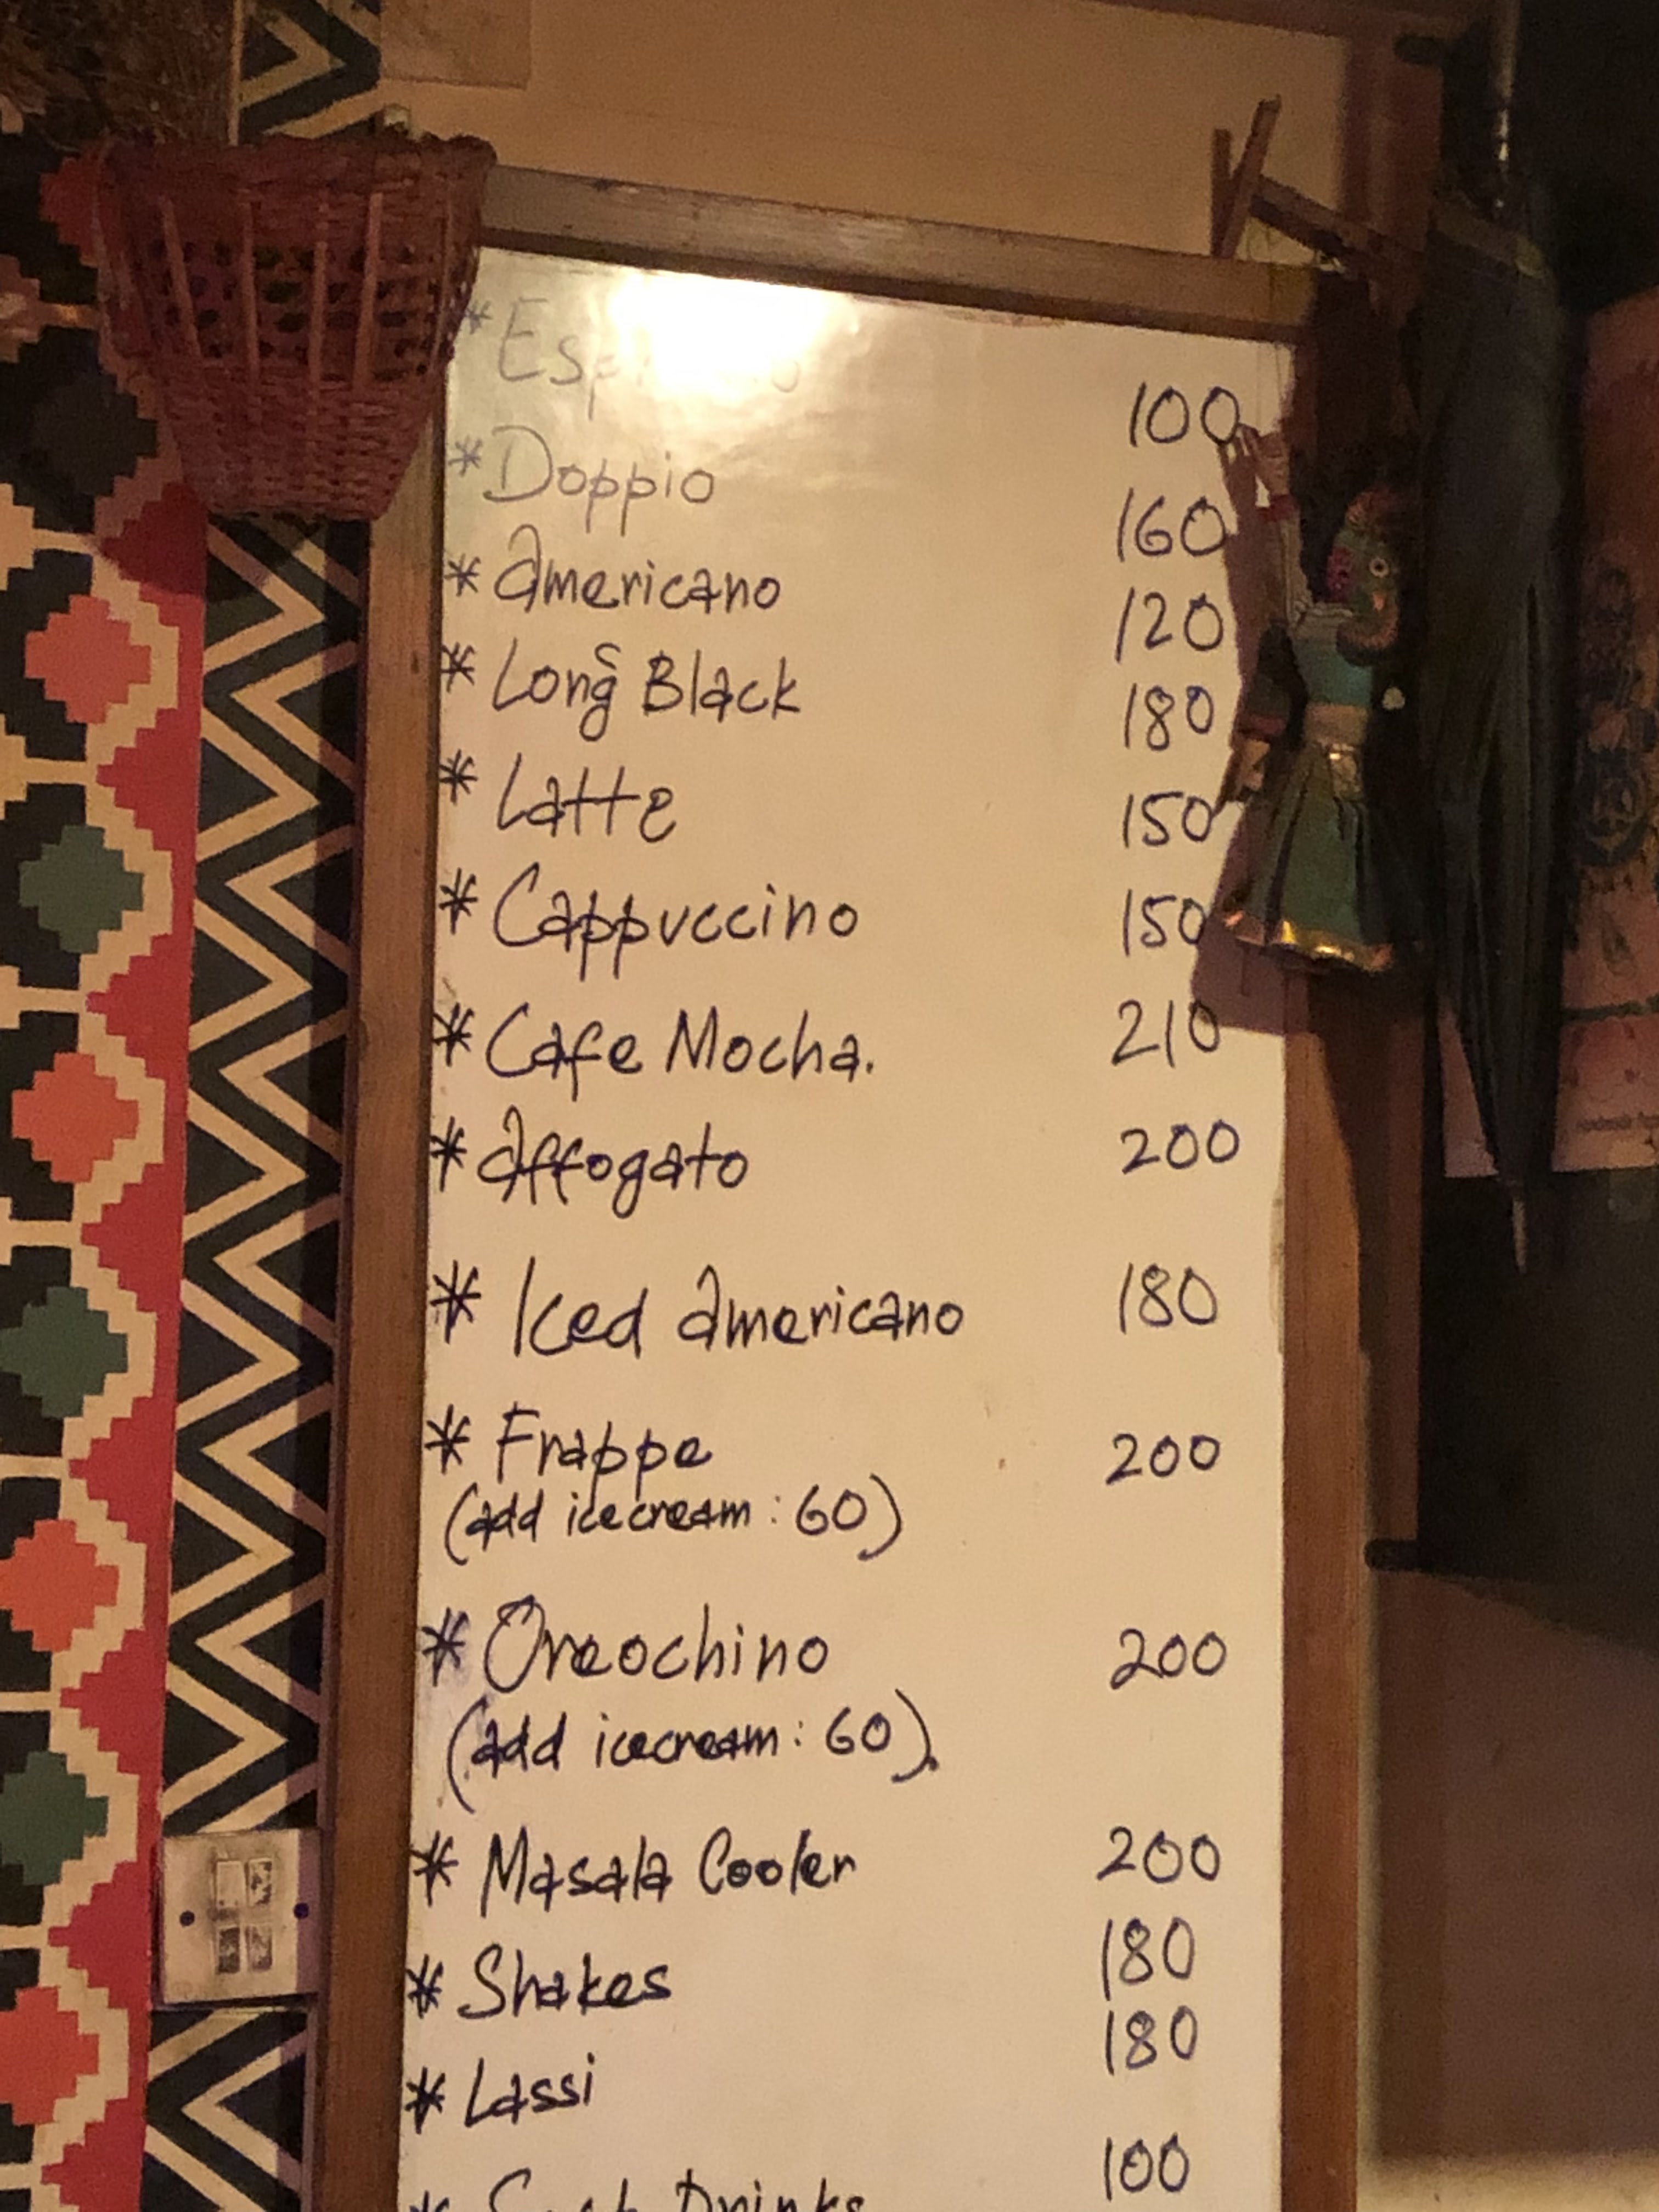 * Doppio 100
* Americano 160
* Long Black 120
* Latte 180
* Cappuccino 150
* Cafe Mocha. 150
210
* Affogato 200
* Iced Americano 180
* Frappe 200
(add icecream : 60)
* Oreochino 200
(add icecream : 60).
* Masala Cooler 200
* Shakes 180
* Lassi 180
Drinks 100